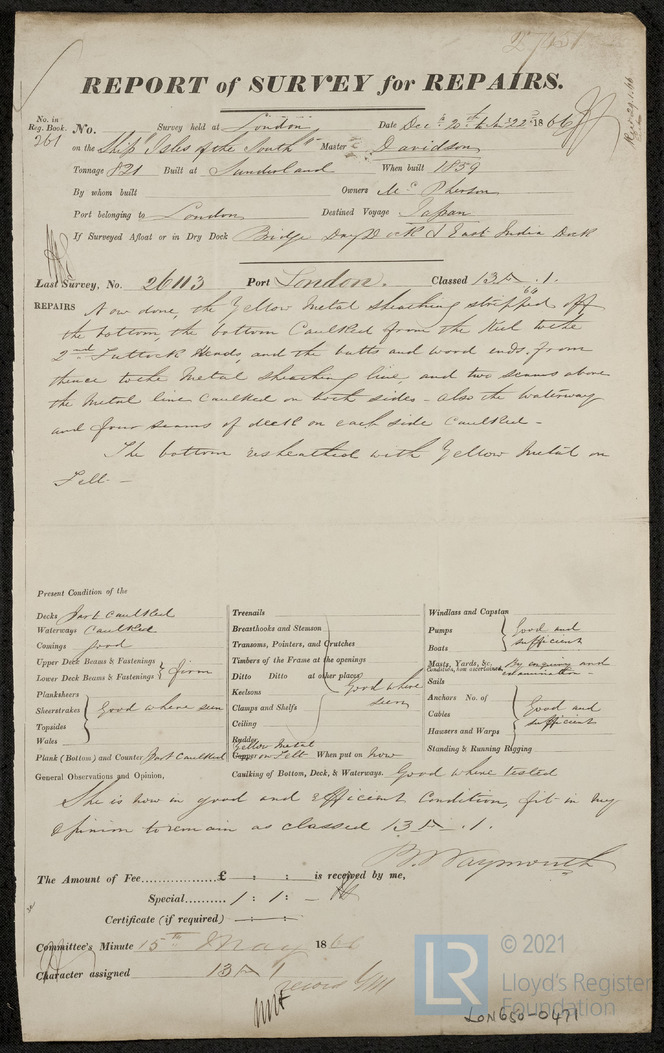 REPORT of SURVEY for REPAIRS.
No. in Reg. Book. 261 No. Survey held at London Date Decr 20th to 22nd 1866
on the Ship "Isles of the South" Master Davidson
Tonnage 821 Built at Sunderland When built 1859
By whom built Owners McPherson
Port belonging to London Destined Voyage Japan
If Surveyed Afloat or in Dry Dock Bridge Dry Dock & East India Dock
Last Survey, No. 26113 Port London. Classed 13A.1.
REPAIRS Now done, the Yellow Metal sheathing stripped off
the bottom, the bottom Caulked from the Keel to the
2nd Futtock Heads, and the butts and wood ends from
thence to the Metal sheathing line, and two seams above
the Metal line Caulked on both sides - also the Waterway
and four seams of deck on each side Caulked -
The bottom resheathed with Yellow Metal on
Felt. -
Present Condition of the
Decks Part Caulked
Waterways Caulked
Comings good
Upper Deck Beams & Fastenings
Lower Deck Beams & Fastenings } firm
Planksheers
Sheerstrakes } Good where seen
Topsides
Wales
Plank (Bottom) and Counter Part Caulked
Treenails
Breasthooks and Stemson
Transoms, Pointers, and Crutches
Timbers of the Frame at the openings
Ditto Ditto at other places
Keelsons Good where seen
Clamps and Shelfs
Ceiling
Rudder
Yellow Metal
Copper on Felt When put on Now
Caulking of Bottom, Deck, & Waterways. Good where tested
Windlass and Capstan
Pumps } Good and
Boats sufficient
Masts, Yards, &c. By enquiry and
Condition, how ascertained examination -
Sails
Anchors No. of
Cables } Good and sufficient
Hawsers and Warps
Standing & Running Rigging
General Observations and Opinion,
She is now in good and efficient Condition, fit in my
opinion to remain as classed 13A.1.
B. Waymouth
The Amount of Fee £ - : - : - is received by me,
Special 1 : 1 : -
Certificate (if required) - : - : -
Committee's Minute 15th May 1866
Character assigned 13A1
record
LR © 2021
Lloyd's Register
Foundation
LON650-0471